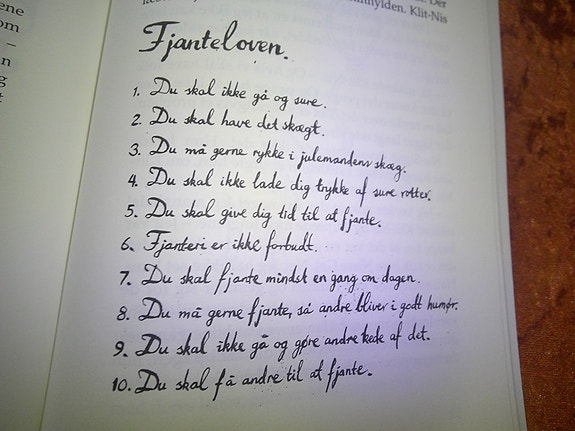 ene
om
–
n
g
t
innhylden. Klit-Nis
Fjanteloven.
1. Du skal ikke gå og sure.
2. Du skal have det skægt.
3. Du må gerne rykke i julemandens skæg.
4. Du skal ikke lade dig trykke af sure rotter.
5. Du skal give dig tid til at fjante.
6. Fjanteri er ikke forbudt.
7. Du skal fjante mindst en gang om dagen.
8. Du må gerne fjante, så andre bliver i godt humør.
9. Du skal ikke gå og gøre andre kede af det.
10. Du skal få andre til at fjante.